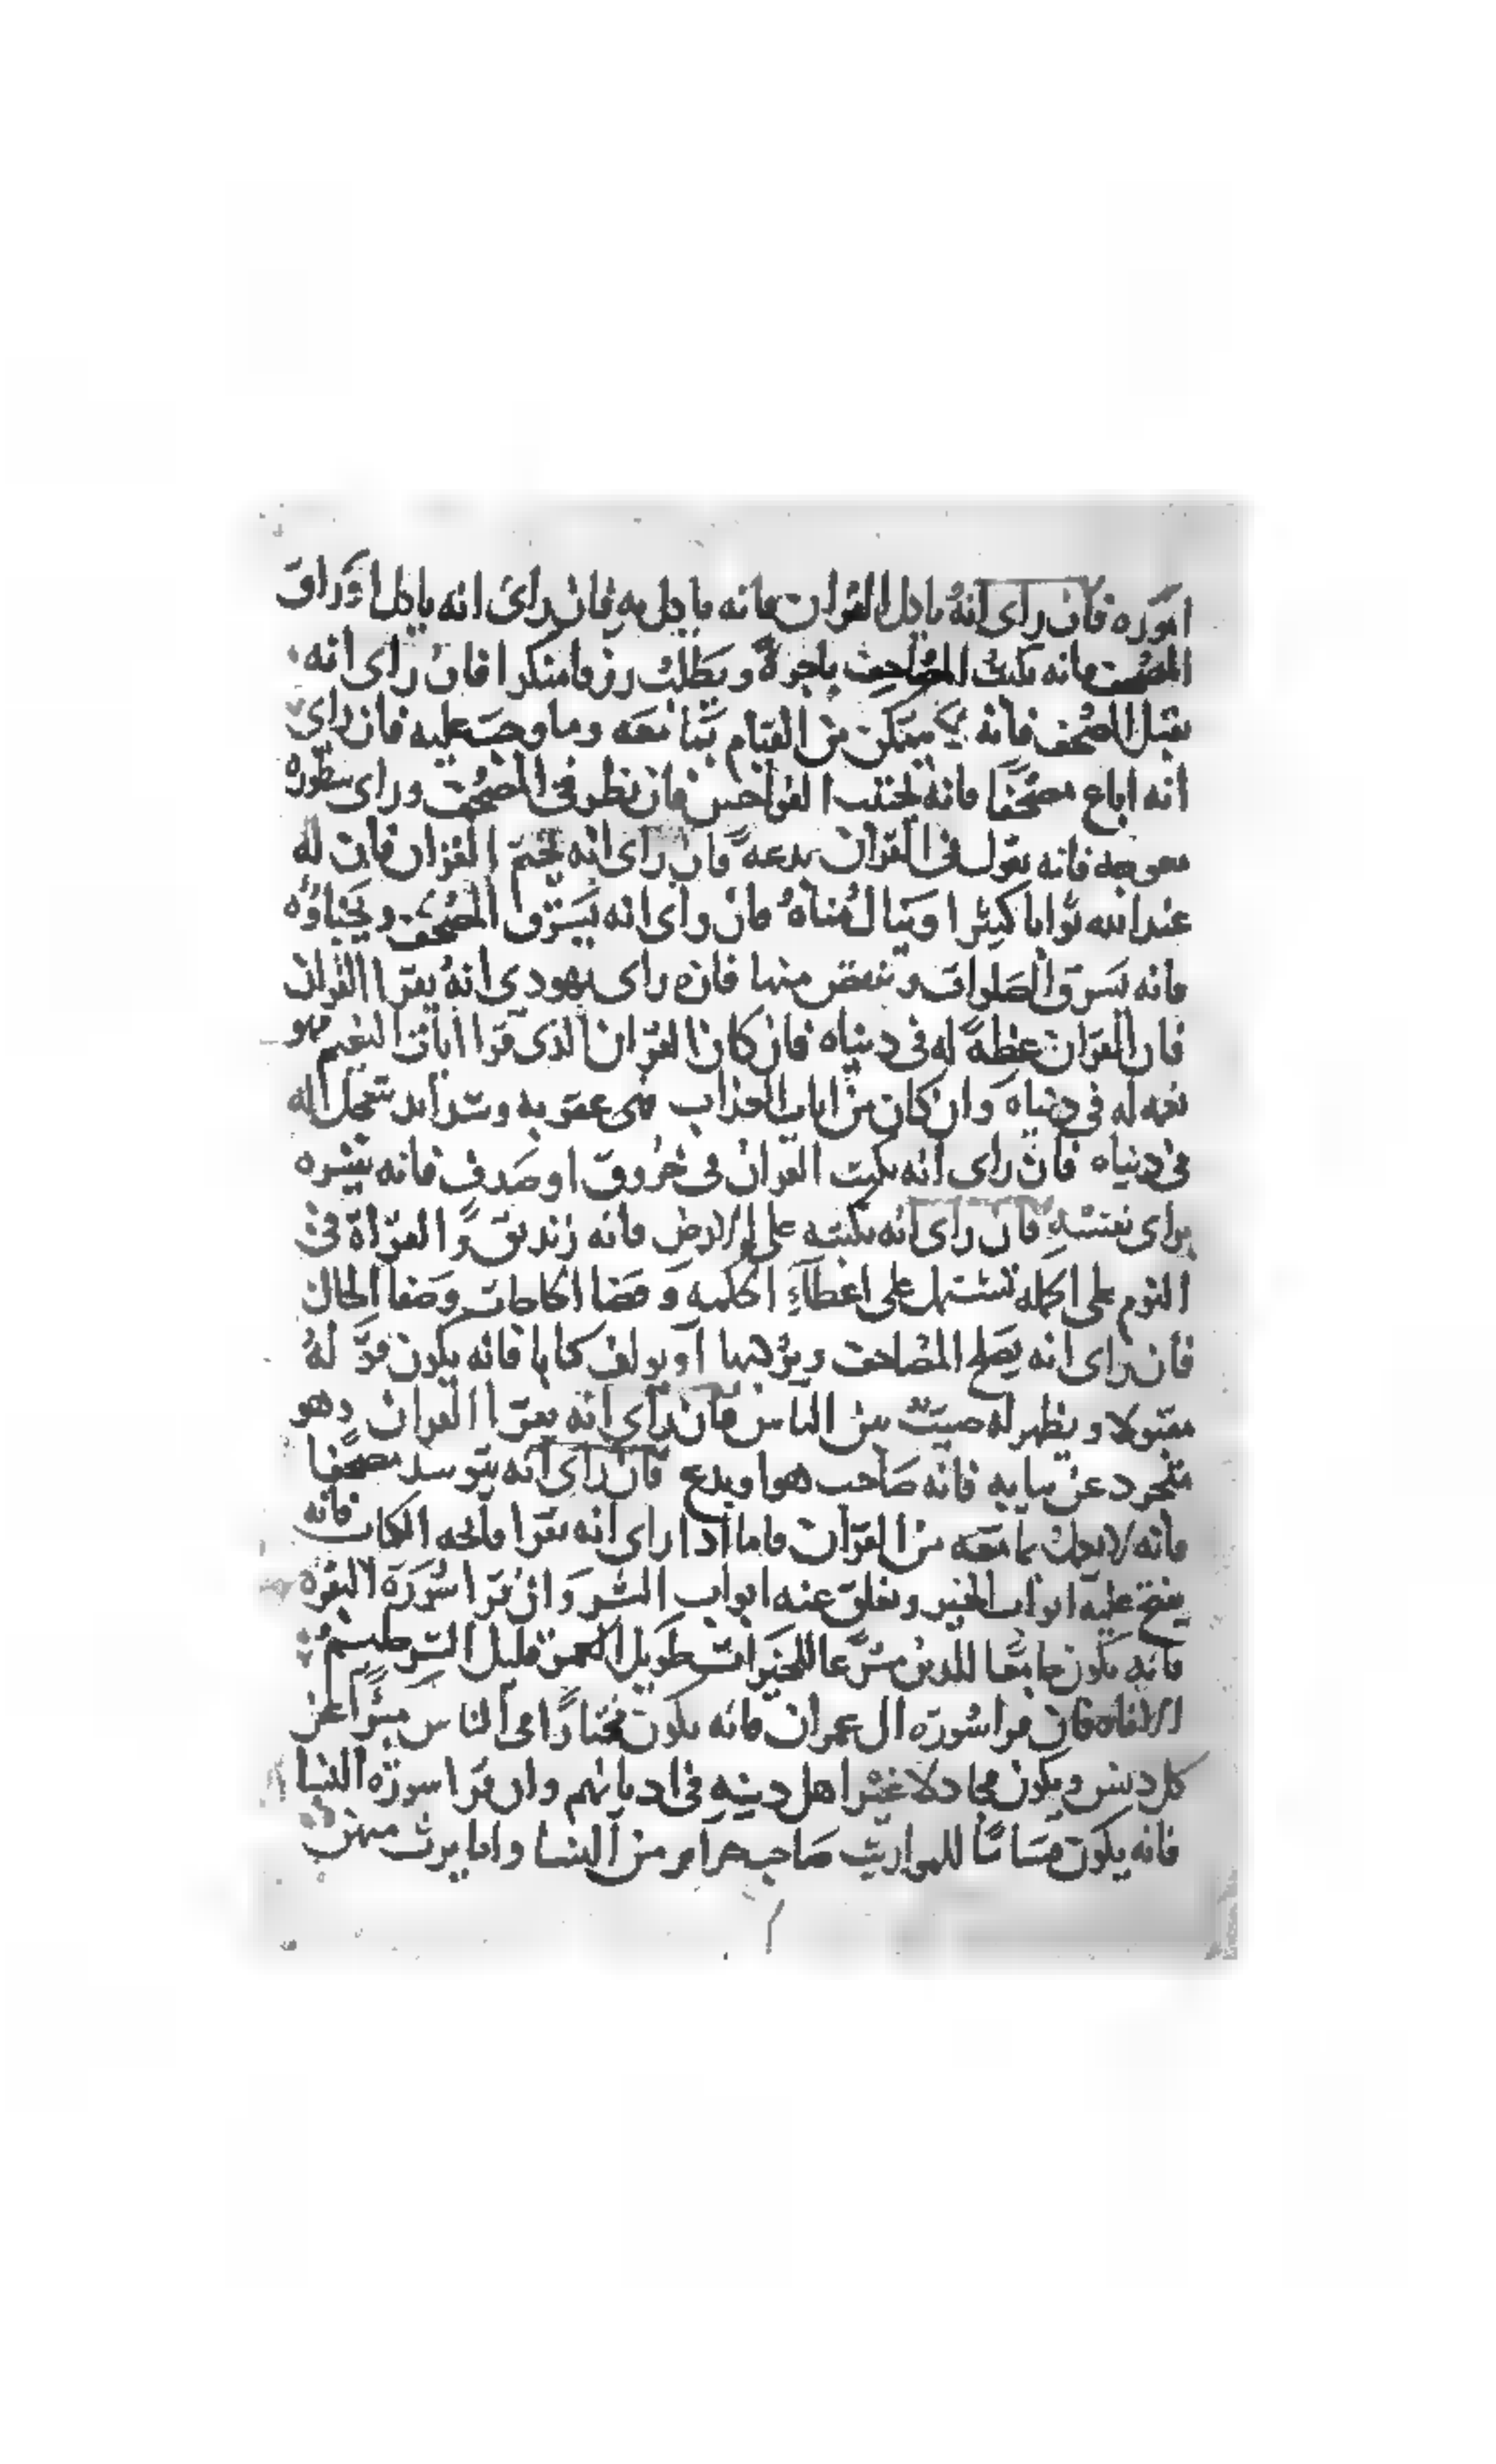 اموره فان راى انه ياكل القران فانه ياكل به فان راى انه ياكل اوراق
المصحف فانه يكتب المصاحف باجرة ويطلب رزقا منكرا فان راى انه
يقبل المصحف فانه لا يتمكن من القيام بما معه وما وجب عليه فان راى
انه اباع مصحفا فانه يجتنب الفواحس فان نظر فى المصحف وراى سطوره
معوجه فانه يقول فى القران بدعة فان راى انه يختم القران فان له
عند الله ثوابا كثيرا وينال مناه فان راى انه يسترق المصحف ويخباوه
فانه يسرق الصلوات وينقص منها فان راى يهودي انه يقرا القران
فان القران عظة له فى دنياه فان كان القران الذى قرا ايات النعيم فهو
نعمه له فى دنياه وان كان من ايات العذاب فهى عقوبه وشدايد تتعجل له
فى دنياه فان راى انه يكتب القران فى خروق او صدف فانه يفسره
براى نفسه فان راى انه يكتبه على الارض فانه زنديق والقراة فى
النوم على اكمله تشتمل على اعطاء الكلمه وقضا الحاجات وصفا الحال
فان راى انه يصلح المصاحف ويزدها او يولف كتابا فانه يكون قوله
مقبولا ويظهر له صيت بين الناس فان راى انه يقرا القران وهو
متجرد عن ثيابه فانه صاحب هوا وبدع فان راى انه يتوسد مصحفا
فانه لا بما معه من القران فاما اذا راى انه يقرا فاتحه الكتاب فانه
يفتح عليه ابواب الخير وتغلق عنه ابواب الشر وان قرا سورة البقره
فانه يكون جامعا للدين مسرعا للخيرات طويل العمر قليل الشر
الافات فان قرا سورة ال عمران فانه يكون مختارا من الناس مبرا من
كل دنس ويكون مجادلا غير اهل دينه فى اديانهم وان قرا سورة النسا
فانه يكون قساما للمواريث صاحب حراير من النسا واما يرث منهن